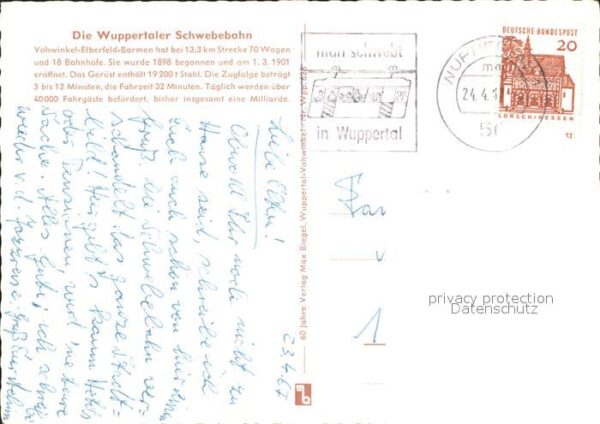 Die Wuppertaler Schwebebahn
Vohwinkel-Elberfeld-Barmen hat bei 13,3 km Strecke 70 Wagen
und 18 Bahnhöfe. Sie wurde 1898 begonnen und am 1. 3. 1901
eröffnet. Das Gerüst enthält 19 200 t Stahl. Die Zugfolge beträgt
3 bis 12 Minuten, die Fahrzeit 32 Minuten. Täglich werden über
40 000 Fahrgäste befördert, bisher insgesamt eine Milliarde.
man schwebt
in Wuppertal
WUPPER
24.4.
DEUTSCHE BUNDESPOST
20
LORSCH/HESSEN
60 Jahre Verlag Max Biegel, Wuppertal-Vohwinkel
23.4.67
Liebe Eltern!
Obwohl Ihr noch nicht zu
Hause seid, schreibe ich
Euch auch schon von hier einen
Gruß. Die Schwebebahn ver-
schandelt das ganze Stadt-
bild! Hier gibt's kaum Hotels
oder Pensionen, wird 'ne teure
Sache. Alles Gute, ich
wieder
1
privacy protection
Datenschutz